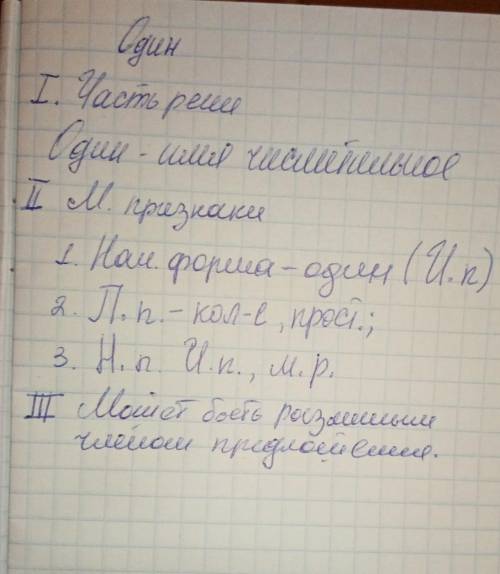 Один
I. Часть речи
Один - имя числительное
II М. признаки
1. Нач. форма - один (И.п)
2. П.п. - кол-е, прост.;
3. Н.п. И.п., м.р.
III Может быть различным
членом предложения.